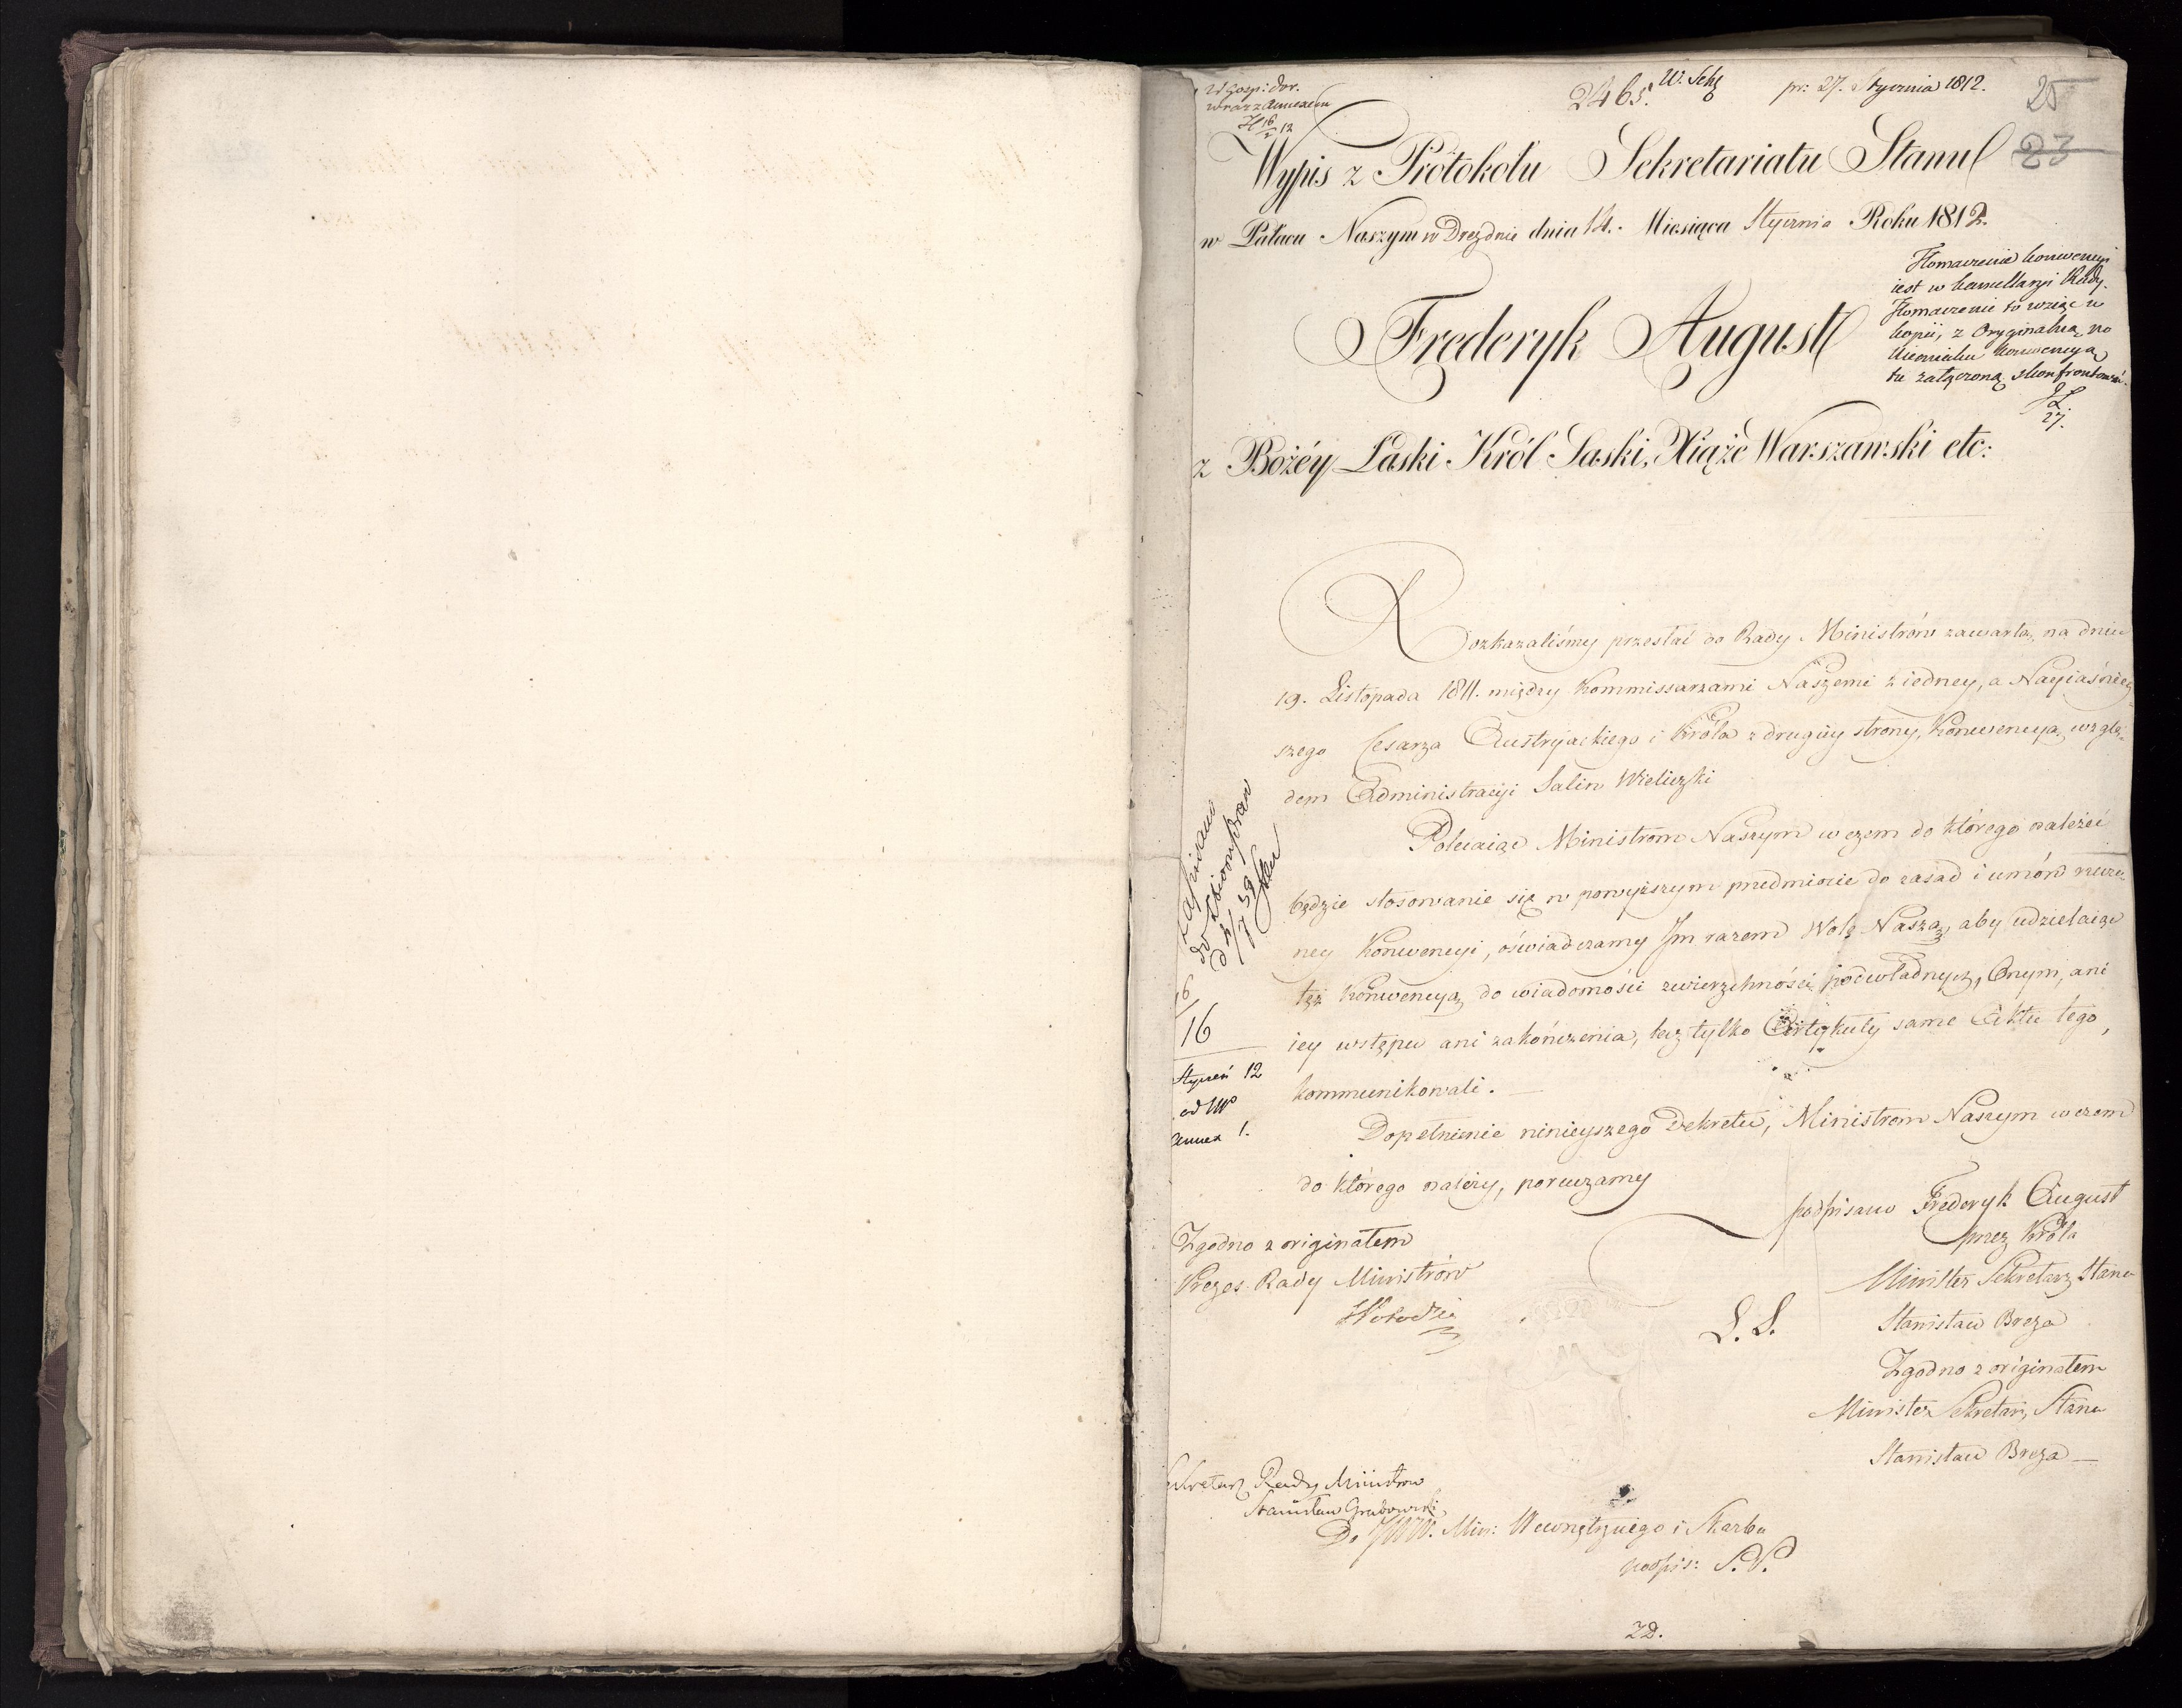 W Gosp: dor.
wraz z annexem
16/2 12
2465. W. Sekr
pr: 27. Stycznia 1812.
25
23
Wypis z Protokołu Sekretariatu Stanu
w Pałacu Naszym w Dreźnie dnia 14. Miesiąca Stycznia Roku 1812.
Tłomaczenie konwencyi
iest w kancellaryi Rady.
Tłomaczenie to wziąć w
kopii, z Oryginalną po
niemiecku konwencyą
tu załączoną skonfrontować.
27.
Fryderyk August
z Bożéy Łaski Król Saski, Xiąże Warszawski etc:
Rozkazaliśmy przesłać do Rady Ministrów zawartą na dniu
19. Listopada 1811. między Kommissarzami Naszemi z iedney, a Nayiaśniey
szego Cesarza Austryackiego i Króla z drugiéy strony, Konwencyą wzglę-
dem Administracyi Salin Wieliczki
Polecaiąc Ministrom Naszym w czem do którego należeć
będzie stosowanie się w powyższym przedmiocie do zasad i umów rzeczo
ney Konwencyi, oświadczamy Im razem Wolę Naszą, aby udzielaiąc
téż Konwencyą do wiadomości zwierzchności podwładnych, Onym, ani
iey wstępu ani zakończenia, lecz tylko Artykuły same Aktu tego,
kommunikowali. —
Dopełnienie ninieyszego Dekretu, Ministrom Naszym w czem
do którego należy, poruczamy
zapisano
do zbioru praw
16
16
Styczeń 12
od M
annex 1.
podpisano Fryderyk August
przez Króla
Minister Sekretarz Stanu
Stanisław Breza
L. S.
Zgodno z originałem
Minister Sekretarz Stanu
Stanisław Breza —
Zgodno z originałem
Prezes Rady Ministrów
Sekretarz Rady Ministrów
Stanisław Grabowski
Do JWW. Min: Wewnętrznego i Skarbu
podpis: S. P.